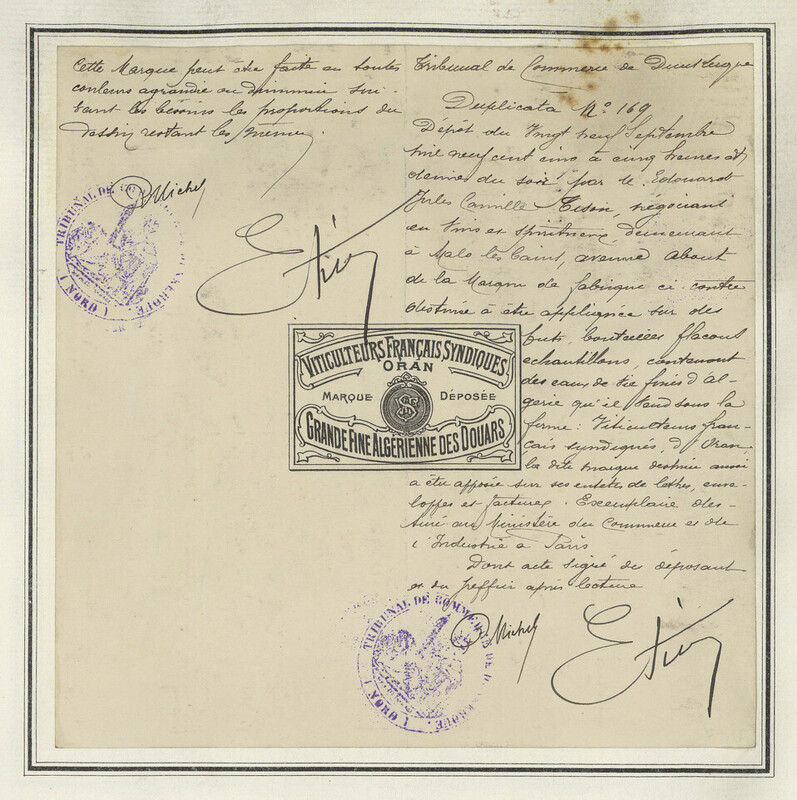 Cette Marque peut être faite en toutes
couleurs agrandie ou diminuée sui-
vant les besoins les proportions du
dessin restant les mêmes.
Michel
TRIBUNAL DE COMMERCE DE DUNKERQUE
(NORD)
Tribunal de Commerce de Dunkerque
Duplicata N° 169
Dépôt du Vingt neuf Septembre
mil neuf cent cinq à cinq heures et
demie du soir par M. Edouard
Jules Camille Tison, négociant
en Vins et Spiritueux demeurant
à Malo les Bains, avenue About
de la Marque de fabrique ci contre
destinée à être appliquée sur des
futs, bouteilles flacons
echantillons, contenant
des eaux de vie fines d'al-
gerie qu'il vend sous la
firme : Viticulteurs fran-
çais syndiqués, d'Oran,
la dite marque destinée aussi
à être apposée sur ses entêtes de lettres, enve-
loppes et factures. Exemplaire des-
tiné au Ministère du Commerce et de
l'Industrie à Paris
Dont acte signé du déposant
et du greffier après lecture
VITICULTEURS FRANÇAIS SYNDIQUÉS
ORAN
MARQUE DÉPOSÉE
GRANDE FINE ALGÉRIENNE DES DOUARS
Michel
E Tison
TRIBUNAL DE COMMERCE DE DUNKERQUE
(NORD)